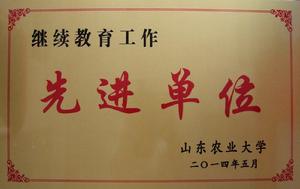 继续教育工作
先进单位
山东农业大学
二〇一四年五月